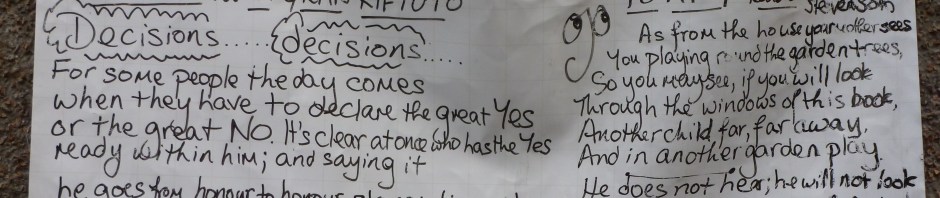 Decisions..... decisions.....
For some people the day comes
when they have to declare the great Yes
or the great NO. It's clear at once who has the Yes
ready within him; and saying it
he goes from honour to honour
Stevenson
As from the house your mother sees
You playing round the garden trees,
So you may see, if you will look
Through the windows of this book,
Another child far, far away,
And in another garden play.
He does not hear; he will not look